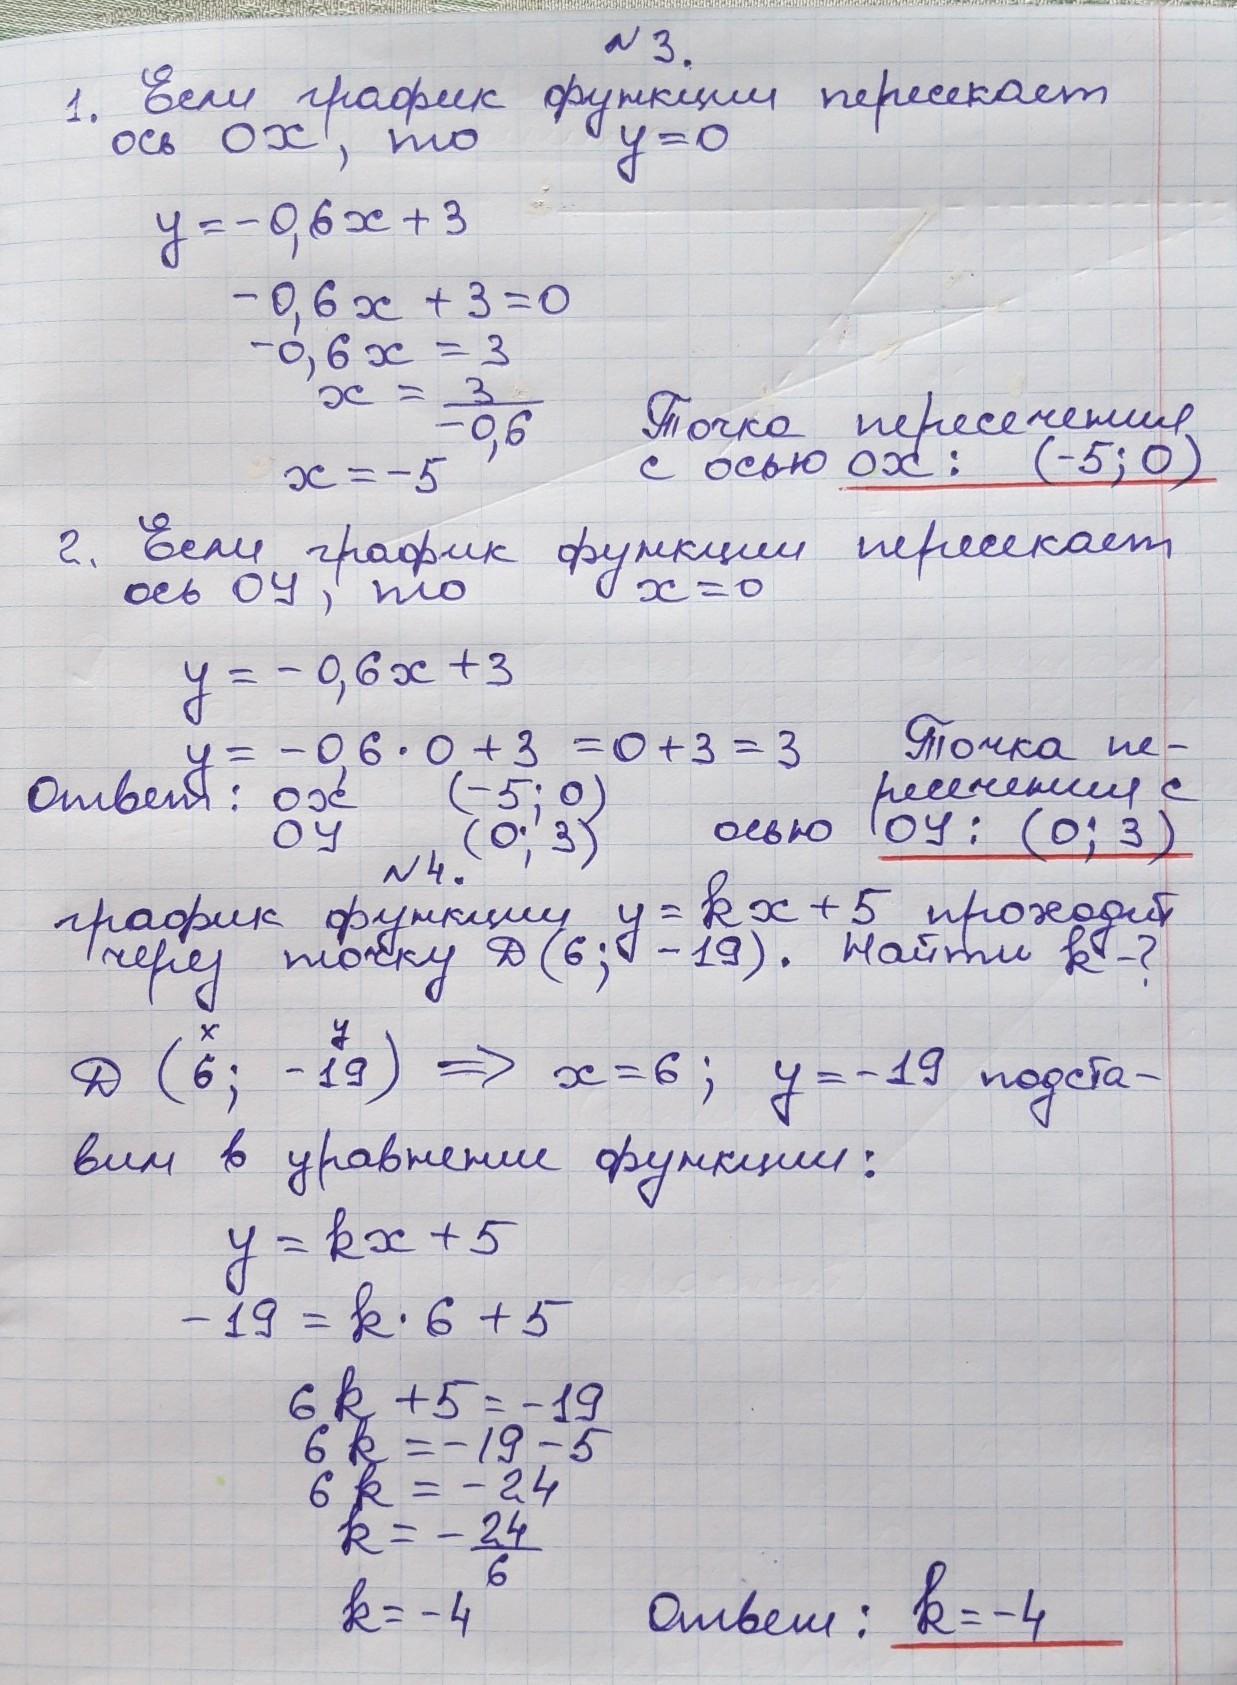 №3.
1. Если график функции пересекает
ось ОХ, то y=0
y=-0,6x+3
-0,6x+3=0
-0,6x=3
x = 3/-0,6
x=-5
Точка пересечения
с осью ОХ: (-5; 0)
2. Если график функции пересекает
ось ОУ, то x=0
y=-0,6x+3
y= -0,6·0+3 =0+3=3
Точка пе-
ресечения с
осью ОУ: (0; 3)
Ответ: ОХ (-5; 0)
ОУ (0; 3)
№4.
график функции y=kx+5 проходит
через точку Д(6; -19). Найти k-?
x y
Д (6; -19) => x=6; y=-19 подста-
вим в уравнение функции:
y=kx+5
-19=k·6+5
6k+5=-19
6k=-19-5
6k=-24
k=-24/6
k=-4
Ответ: k=-4